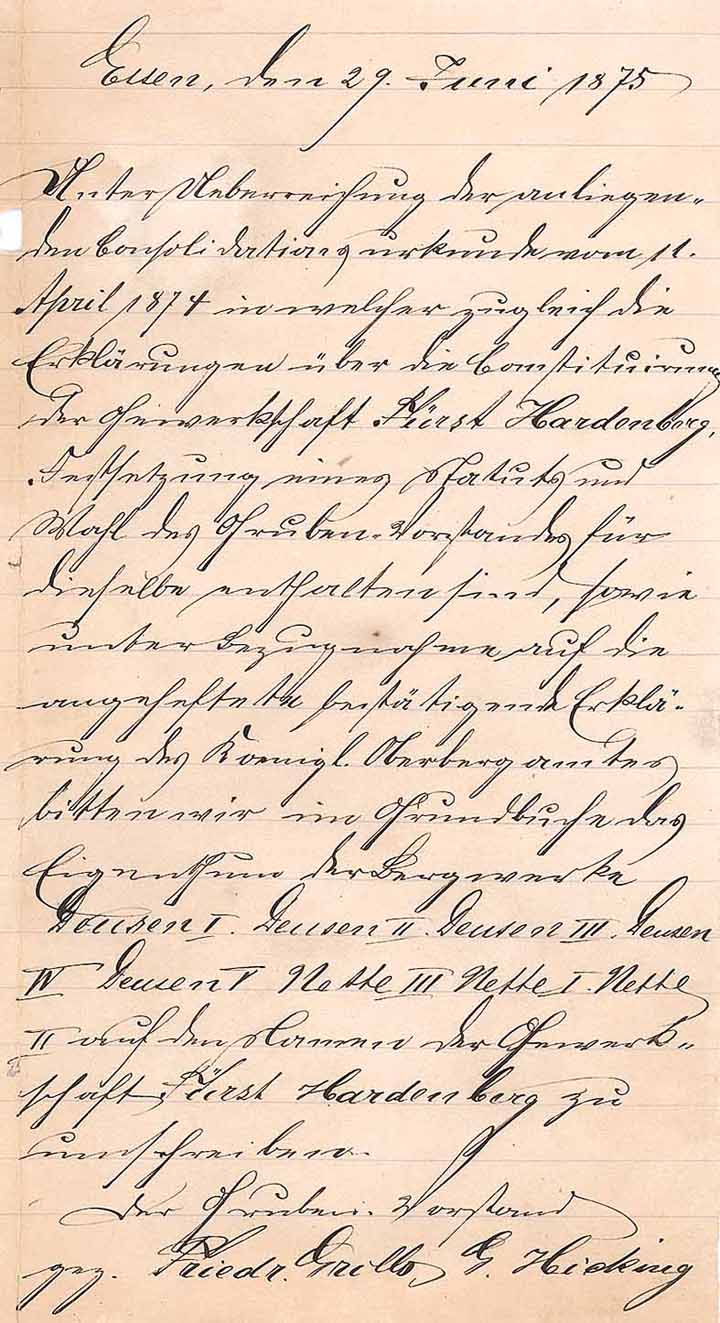 Essen, den 29. Juni 1875
Unter Ueberreichung der anliegen-
den Consolidations urkunde vom 11.
April 1874 in welcher zugleich die
Erklärungen über die Constituirung
der Gewerkschaft Fürst Hardenberg,
Festsetzung eines Statuts und
Wahl des Gruben-Vorstandes für
dieselbe enthalten sind, sowie
unter Bezugnahme auf die
angeheftete bestätigende Erklä-
rung des Koenigl. Oberbergamtes
bitten wir im Grundbuche das
Eigenthum der Bergwerke
Deusen I. Deusen II. Deusen III. Deusen
IV Deusen V Nette III Nette I. Nette
II auf den Namen der Gewerk-
schaft Fürst Hardenberg zu
umschreiben.
Der Gruben-Vorstand
gez. Friedr. Grillo, G. Hicking